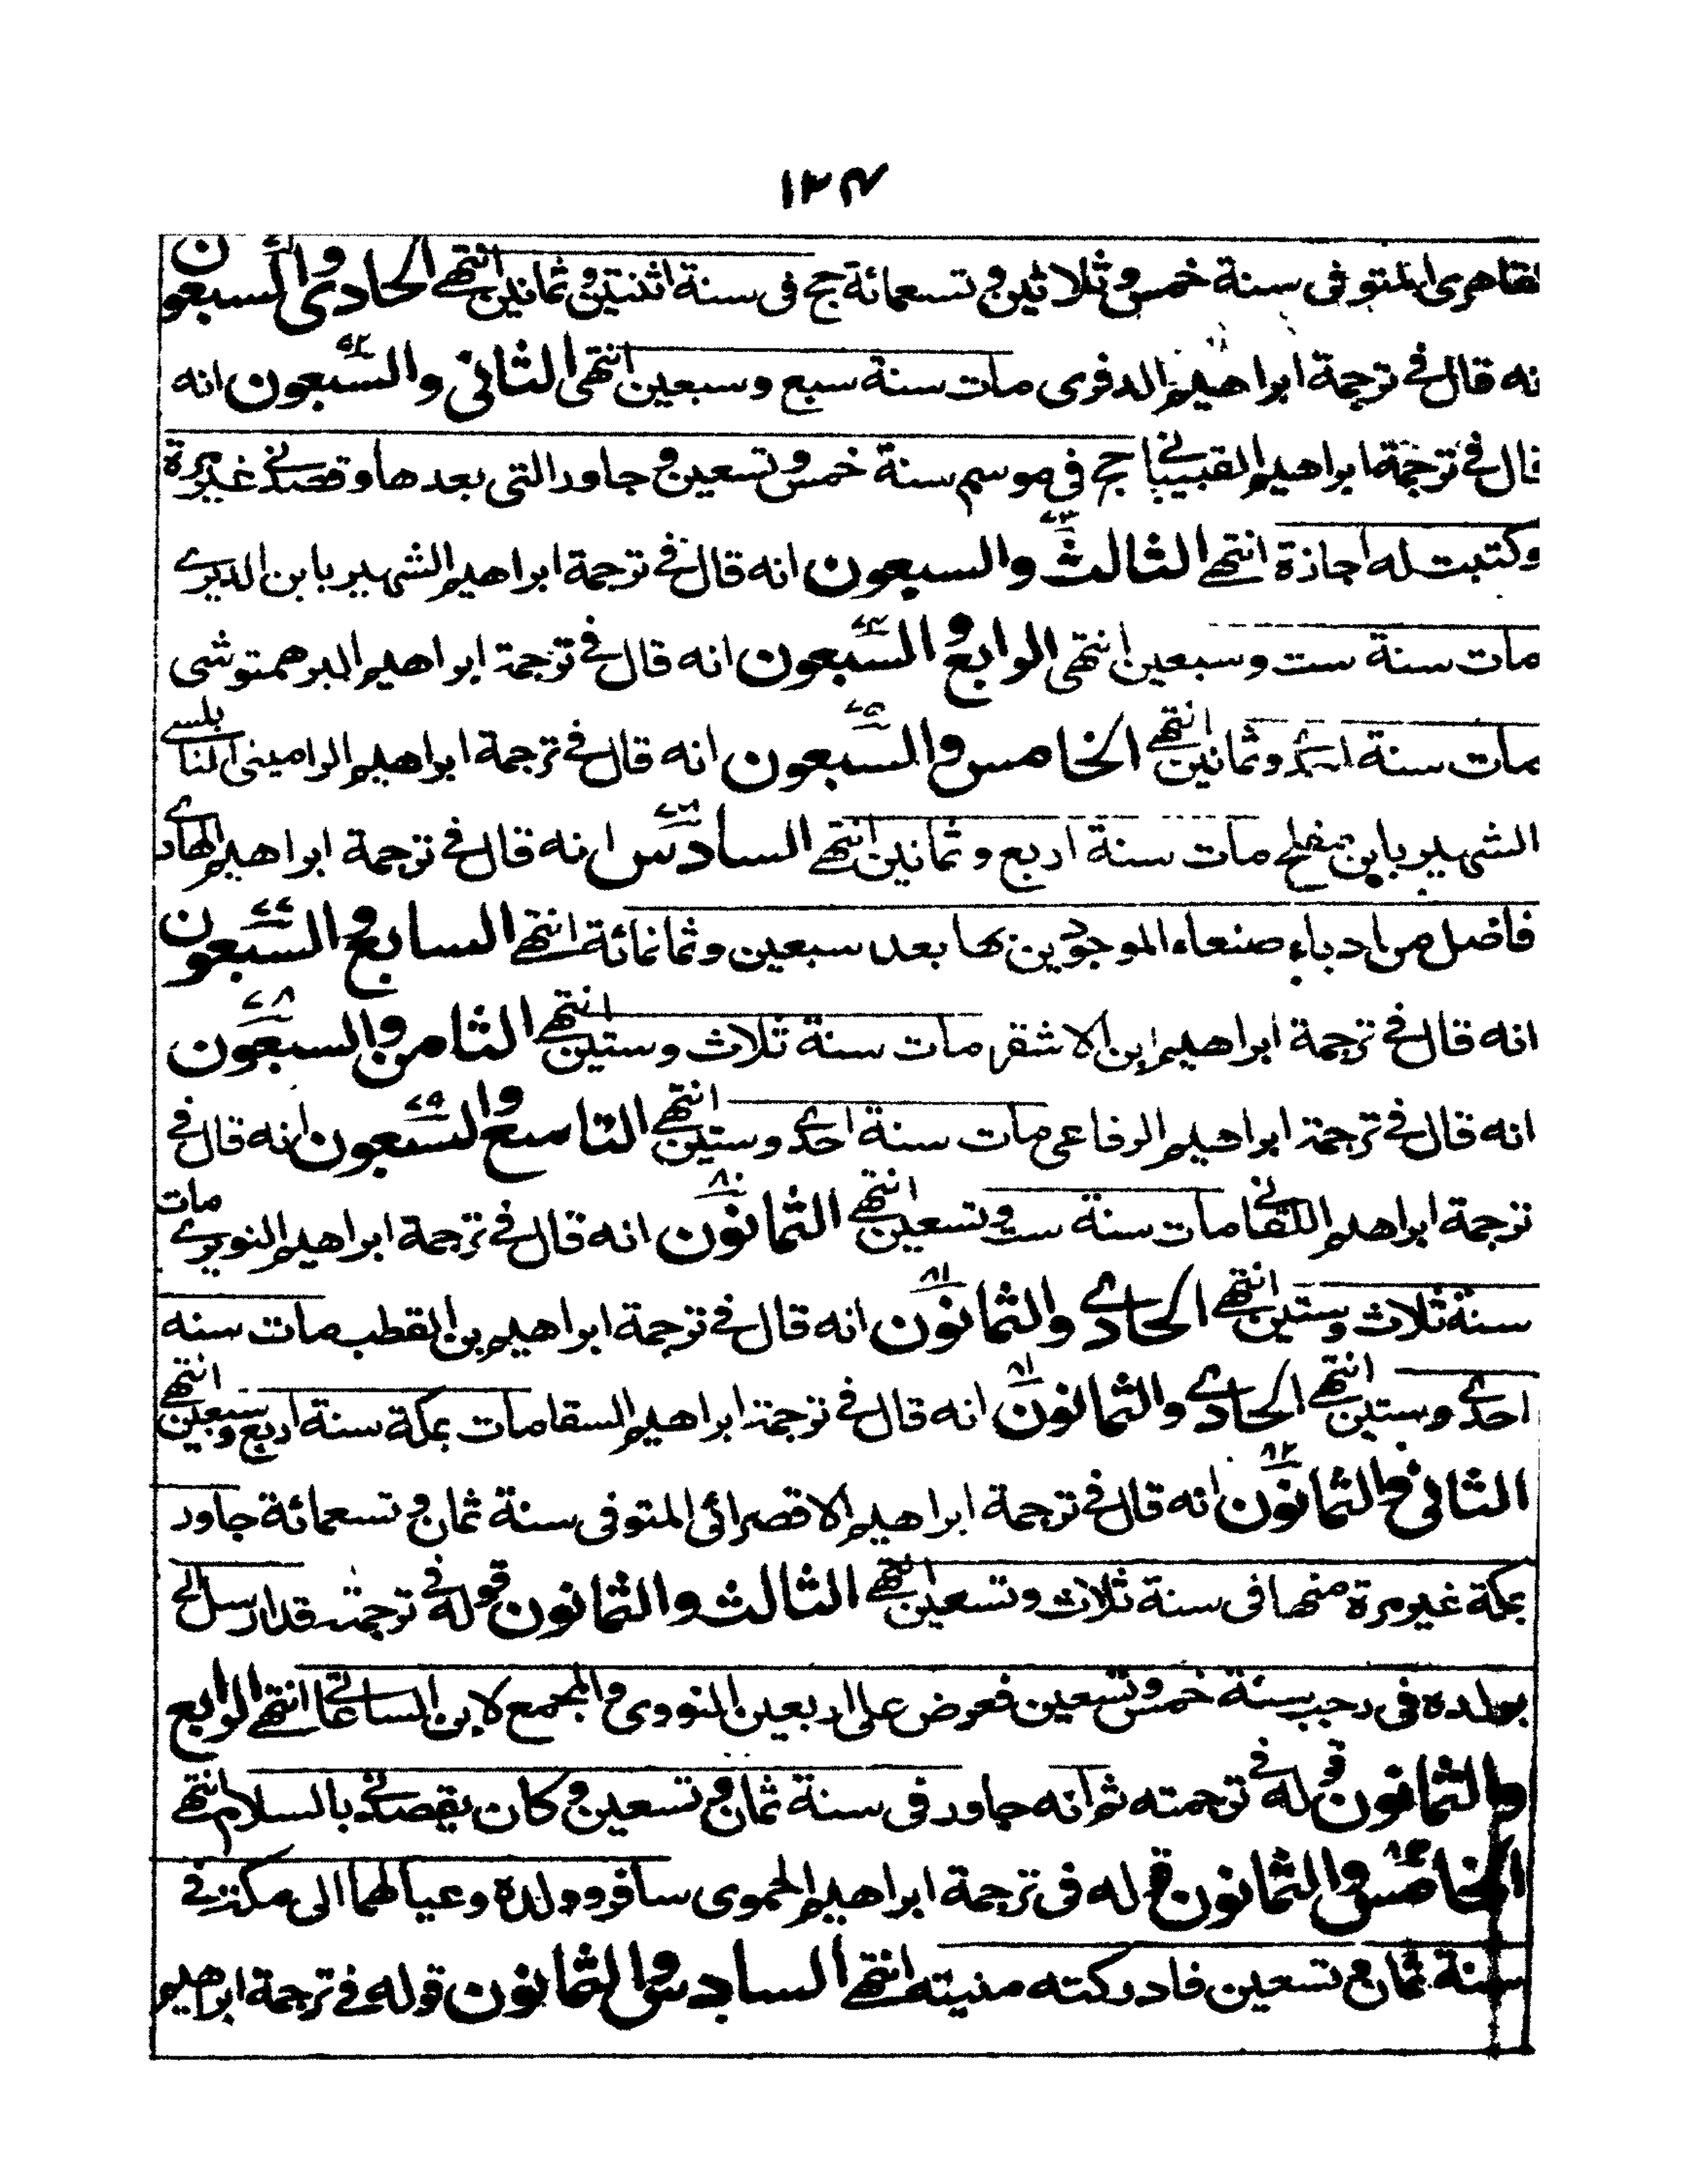 ١٣٤
القاهرى المتوفى سنة خمس وثلاثين وتسعمائة حج فى سنة اثنتين وثمانين انتهے الحادى والسبعون
انه قال فے ترجمة ابراهيم الدفرى مات سنة سبع وسبعين انتهى الثانى والسبعون ٧٢ انه
قال فے ترجمة ابراهيم القبيباتے حج فى موسم سنة خمس وتسعين وجاور التى بعدها وقصدنے غير مرة
وكتبت له اجازة انتهے الثالث والسبعون ٧٣ انه قال فے ترجمة ابراهيم الشهير بابن الديرے
مات سنة ست وسبعين انتهى الرابع والسبعون ٧٤ انه قال فے ترجمة ابراهيم البرهمتوشى
مات سنة احدے وثمانين انتهے الخامس والسبعون ٧٥ انه قال فے ترجمة ابراهيم الرامينى النابلسے
الشهير بابن مفلح مات سنة اربع وثمانين انتهے السادس ٧٦ انه قال فے ترجمة ابراهيم الهادے
فاضل من ادباء صنعاء الموجودين بها بعد سبعين وثمانمائة انتهے السابع والسبعون ٧٧
انه قال فے ترجمة ابراهيم ابن الاشقر مات سنة ثلاث وستين انتهے الثامن والسبعون ٧٨
انه قال فے ترجمة ابراهيم الرفاعى مات سنة احدے وستين انتهے التاسع والسبعون ٧٩ انه قال فے
ترجمة ابراهيم اللقانے مات سنة ست وتسعين انتهے الثمانون ٨٠ انه قال فے ترجمة ابراهيم النويرے مات
سنة ثلاث وستين انتهے الحادے والثمانون ٨١ انه قال فے ترجمة ابراهيم بن القطب مات سنه
احدے وستين انتهے الحادے والثمانون ٨١ انه قال فے ترجمة ابراهيم السقا مات بمكة سنة اربع وسبعين انتهے
الثانى والثمانون ٨٢ انه قال فے ترجمة ابراهيم الاقصرائى المتوفى سنة ثمان وتسعمائة جاور
بمكة غير مرة منها فى سنة ثلاث وتسعين انتهے الثالث والثمانون قوله فے ترجمته قد ارسل الے
بولده فى رجب سنة خمس وتسعين فعرض على اربعين النووى والمجمع لابن الساعاتے انتهے الرابع
والثمانون قوله فے ترجمته ثم انه جاور فى سنة ثمان وتسعين وكان يقصدنے بالسلام انتهے
الخامس والثمانون قوله فى ترجمة ابراهيم الحموى سافر وولده وعيالهما الى مكة فے
سنة ثمان وتسعين فادركته منيته انتهے السادس والثمانون قوله فے ترجمة ابراهيم